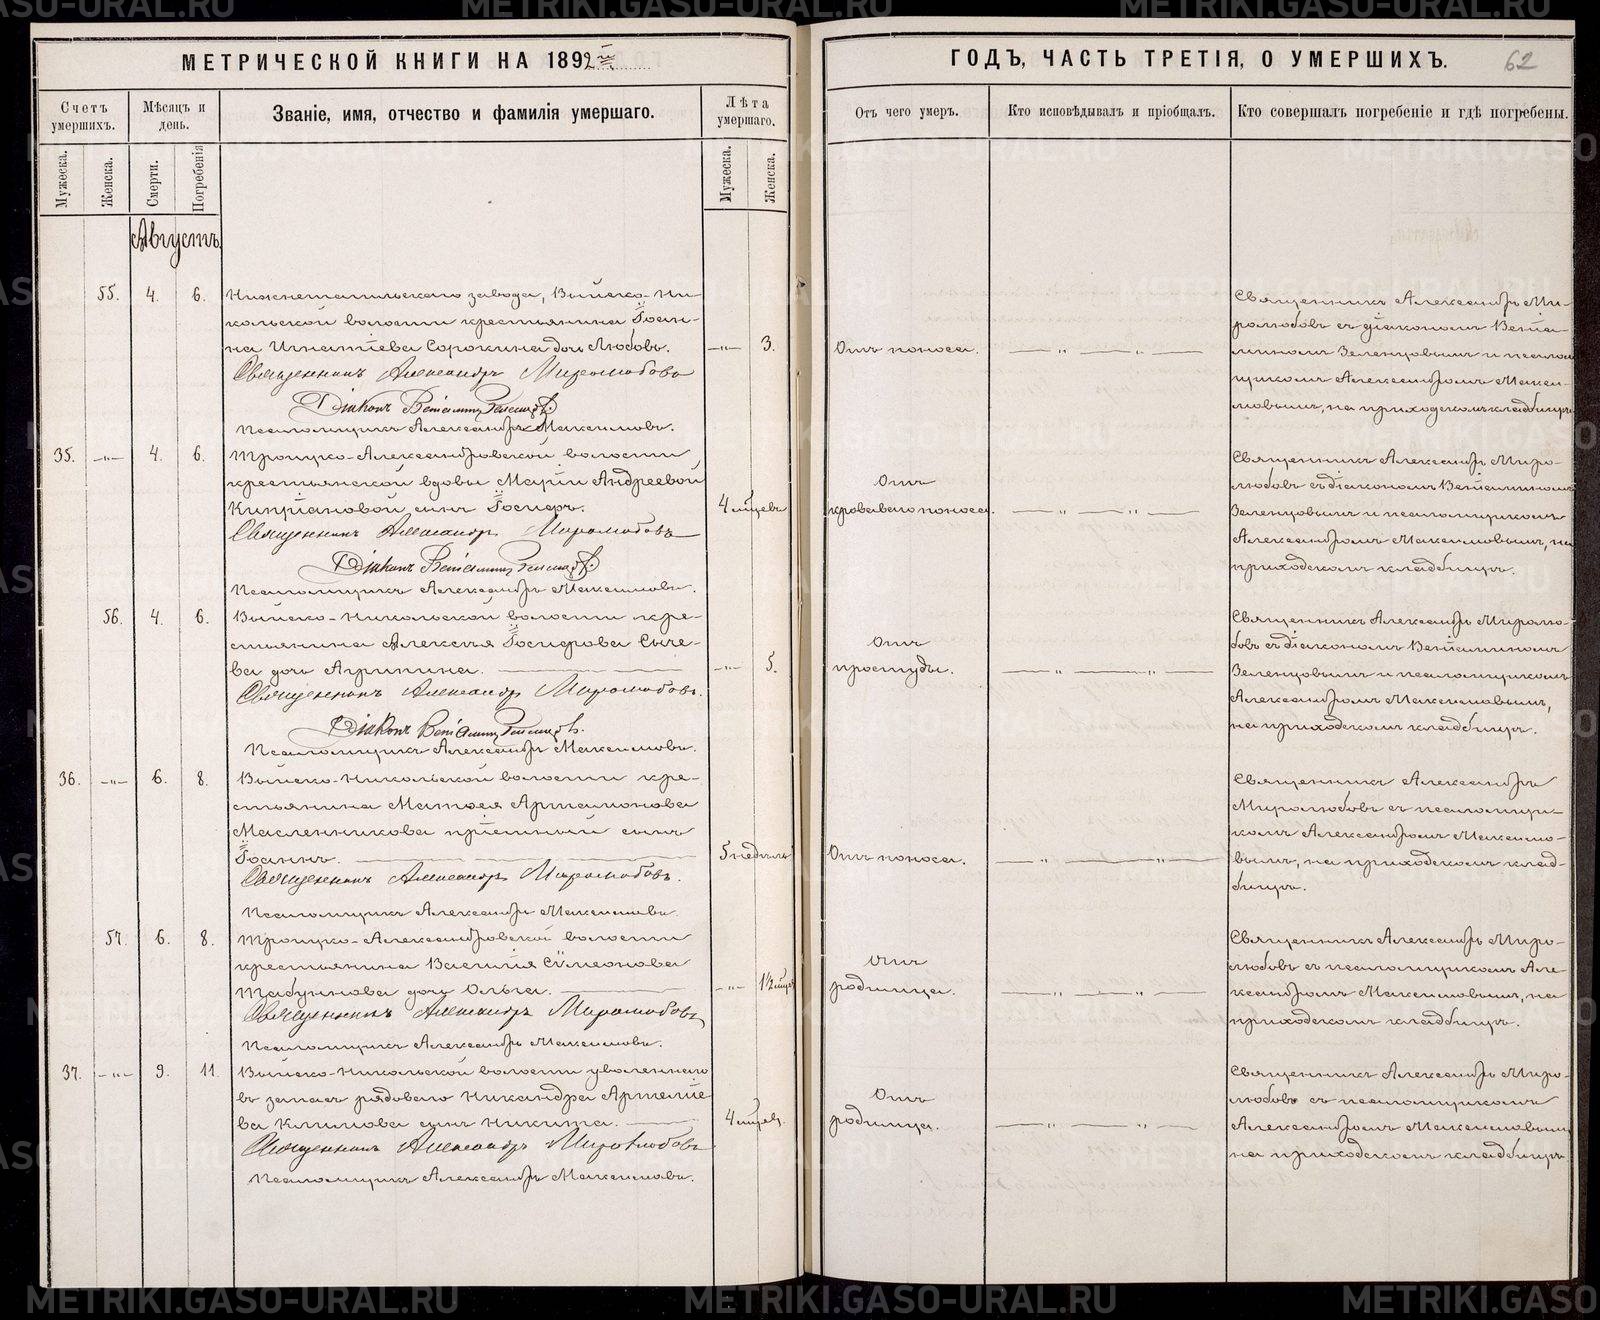 МЕТРИЧЕСКОЙ КНИГИ НА 1892й
ГОДЪ, ЧАСТЬ ТРЕТІЯ, О УМЕРШИХЪ.
62
Счетъ умершихъ.
Мѣсяцъ и день.
Званіе, имя, отчество и фамилія умершаго.
Лѣта умершаго.
Отъ чего умеръ.
Кто исповѣдывалъ и пріобщалъ.
Кто совершалъ погребеніе и гдѣ погребены.
Мужеска.
Женска.
Смерти.
Погребенія
Мужеска.
Женска.
Августъ.
55. 4. 6.
Нижнетагильскаго завода, Выйско-Ни-
кольской волости крестьянина Іоан-
на Игнатіева Сорокина дочь Любовь.
Священникъ Александръ Миролюбовъ
Діаконъ Веніаминъ Зеленцовъ.
Псаломщикъ Александръ Максимовъ.
3.
Отъ поноса.
Священникъ Александръ Ми-
ролюбовъ съ діакономъ Веніа-
миномъ Зеленцовымъ и псалом
щикомъ Александромъ Макси-
мовымъ, на приходскомъ кладбищѣ
35. 4. 6.
Троицко-Александровской волости
крестьянской вдовы Маріи Андреевой
Кипріановой сынъ Іосифъ.
Священникъ Александръ Миролюбовъ
Діаконъ Веніаминъ Зеленцовъ.
Псаломщикъ Александръ Максимовъ.
4 мѣсяцевъ
Отъ
кроваваго поноса.
Священникъ Александръ Миро-
любовъ съ діакономъ Веніаминомъ
Зеленцовымъ и псаломщикомъ
Александромъ Максимовымъ, на
приходскомъ кладбищѣ.
56. 4. 6.
Выйско-Никольской волости кре-
стьянина Алексѣя Іосифова Сыче-
ва дочь Агрипина.
Священникъ Александръ Миролюбовъ.
Діаконъ Веніаминъ Зеленцовъ.
Псаломщикъ Александръ Максимовъ.
5.
Отъ
простуды.
Священникъ Александръ Миролю-
бовъ съ діакономъ Веніаминомъ
Зеленцовымъ и псаломщикомъ
Александромъ Максимовымъ,
на приходскомъ кладбищѣ.
36. 6. 8.
Выйско-Никольской волости кре-
стьянина Матѳея Артамонова
Масленникова пріемный сынъ
Іоаннъ.
Священникъ Александръ Миролюбовъ.
Псаломщикъ Александръ Максимовъ.
5 недѣль
Отъ поноса.
Священникъ Александръ
Миролюбовъ съ псаломщи-
комъ Александромъ Максимо-
вымъ, на приходскомъ клад-
бищѣ.
57. 6. 8.
Троицко-Александровской волости
крестьянина Василія Сѵмеонова
Табуннова дочь Ольга.
Священникъ Александръ Миролюбовъ
Псаломщикъ Александръ Максимовъ.
1½ мѣс
Отъ
родимца.
Священникъ Александръ Миро-
любовъ съ псаломщикомъ Але-
ксандромъ Максимовымъ, на
приходскомъ кладбищѣ.
37. 9. 11.
Выйско-Никольской волости уволеннаго
въ запасъ рядоваго Никандра Артеміе
ва Климова сынъ Никита.
Священникъ Александръ Миролюбовъ
Псаломщикъ Александръ Максимовъ.
4 мѣсяц.
Отъ
родимца.
Священникъ Александръ Миро-
любовъ съ псаломщикомъ
Александромъ Максимовымъ
на приходскомъ кладбищѣ
METRIKI.GASO-URAL.RU